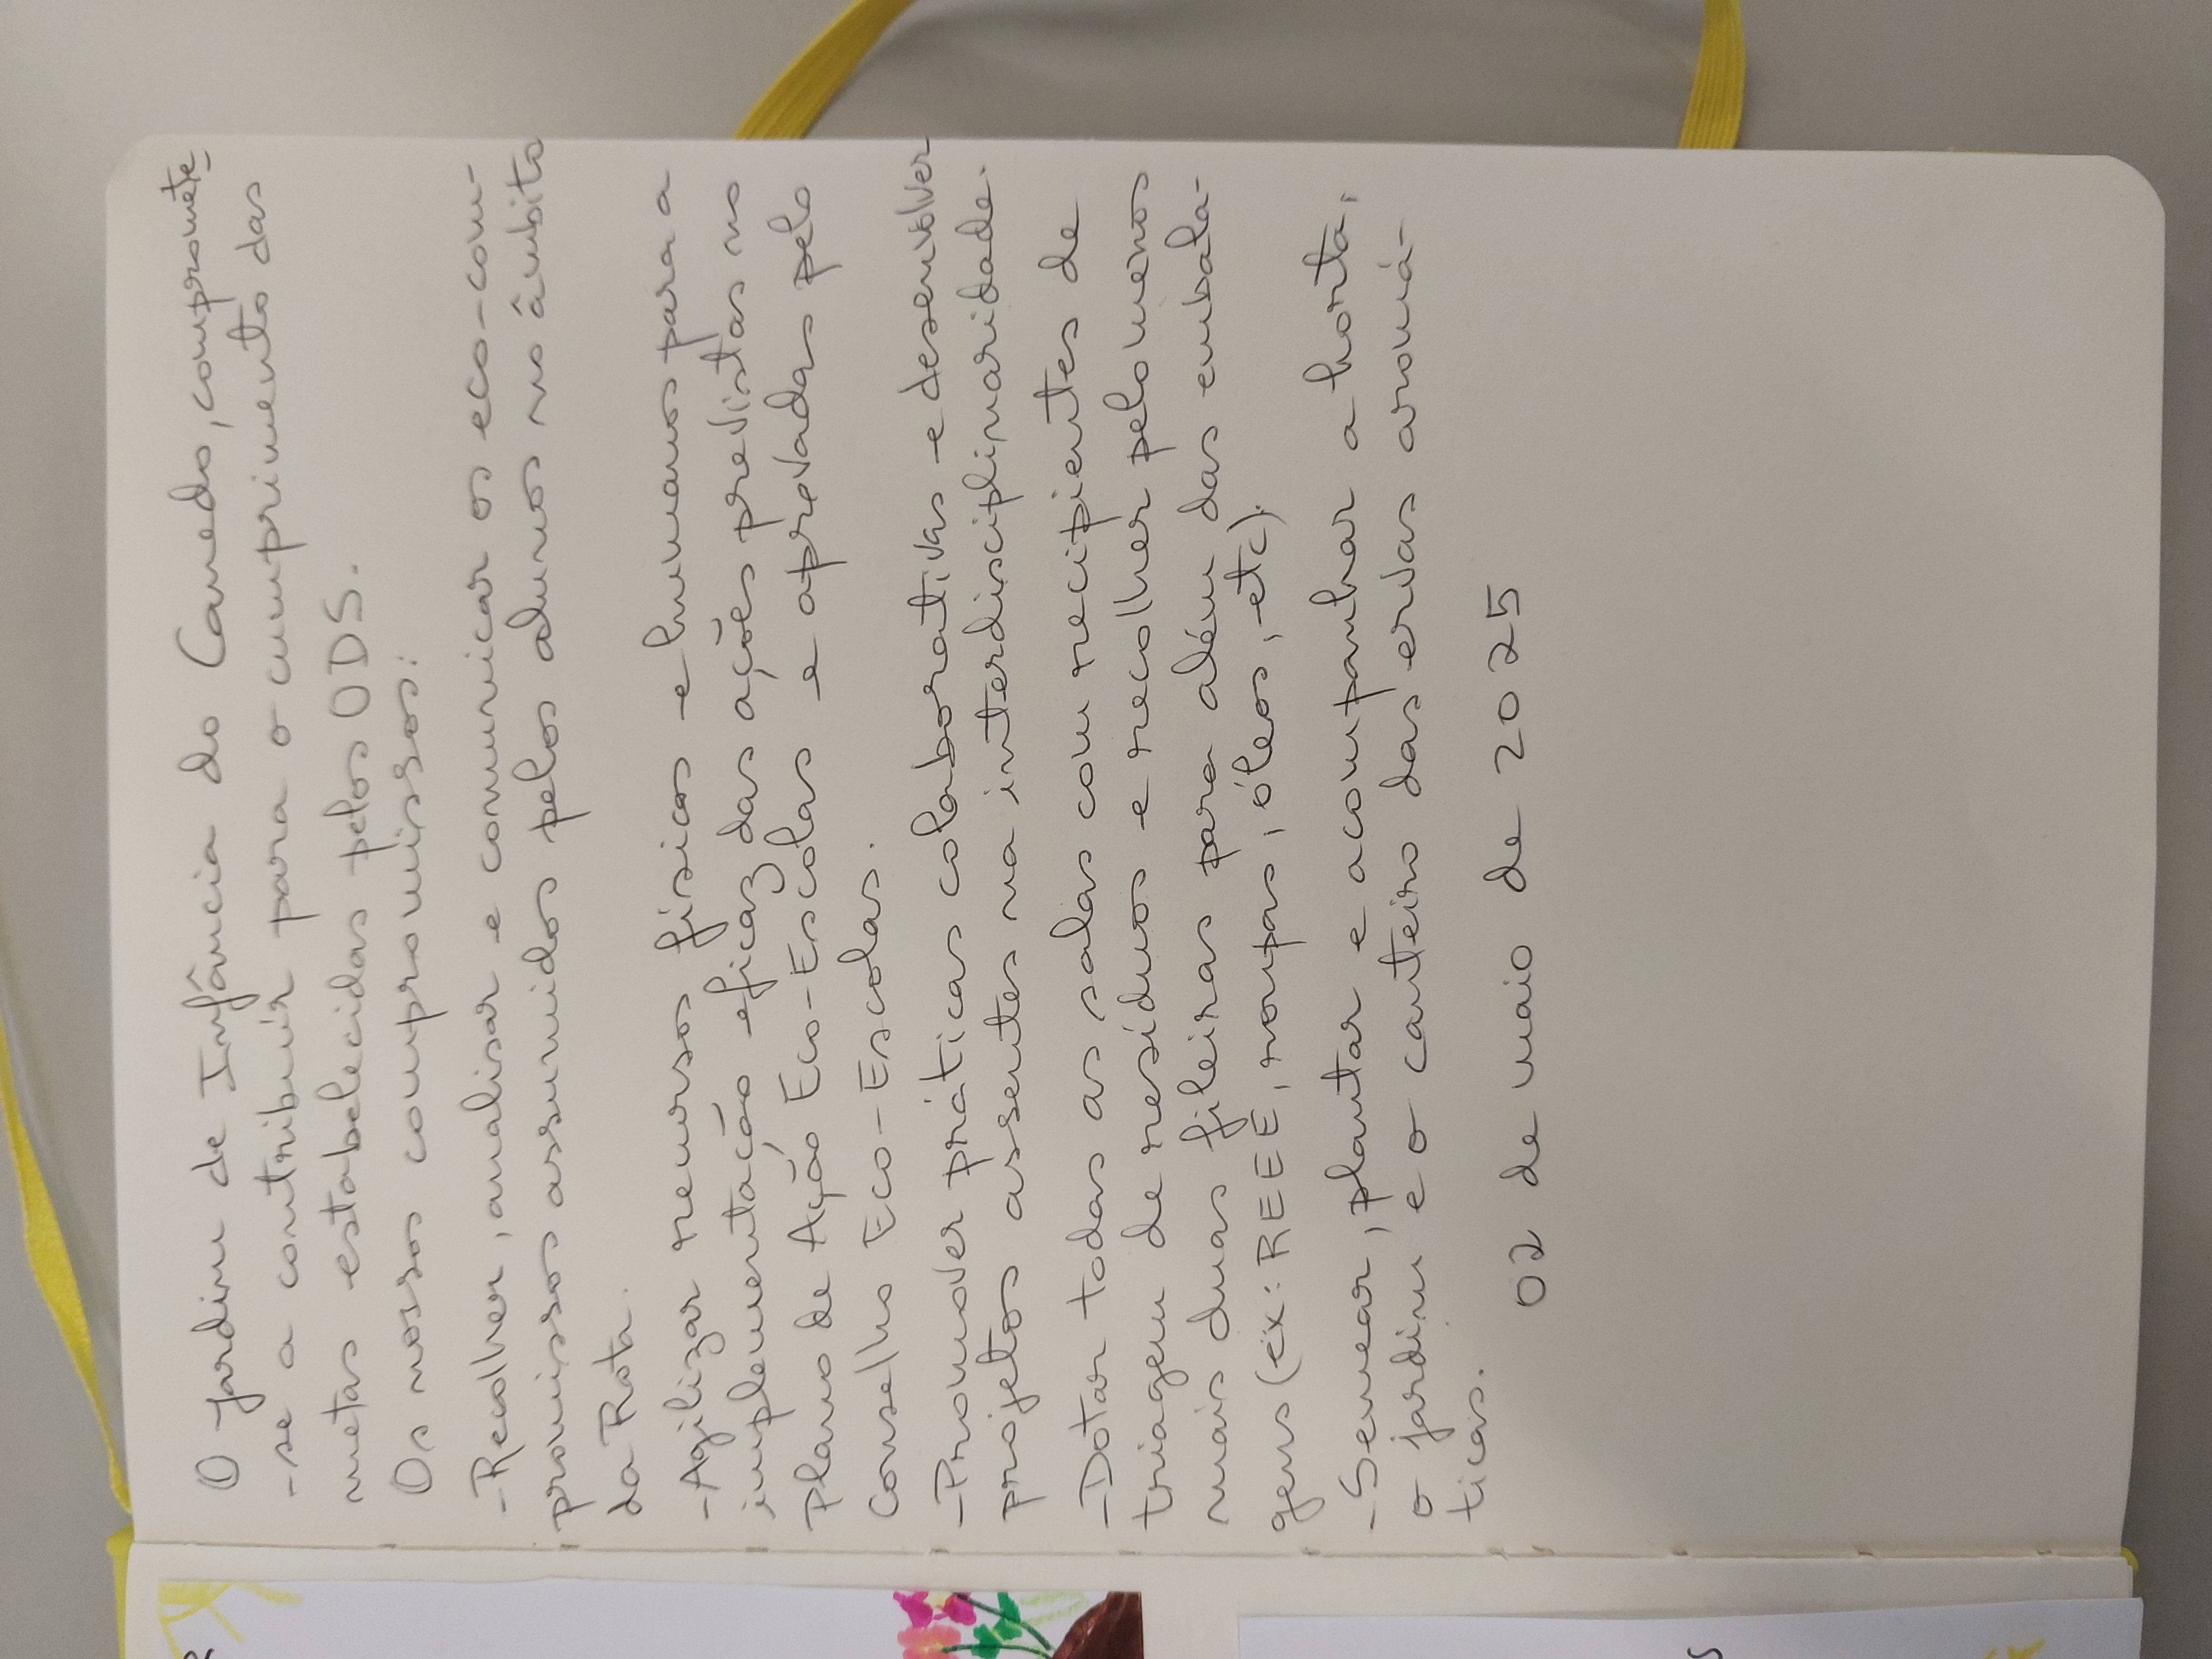 O Jardim de Infância do Canedo, compromete-
-se a contribuir para o cumprimento das
metas estabelecidas pelos ODS.
Os nossos compromissos:
-Recolher, analisar e comunicar os eco-com-
promissos assumidos pelos alunos no âmbito
da Rota.
-Agilizar recursos físicos e humanos para a
implementação eficaz das ações previstas no
plano de Ação Eco-Escolas e aprovadas pelo
Conselho Eco-Escolas.
-Promover práticas colaborativas e desenvolver
projetos assentes na interdisciplinaridade.
-Dotar todas as salas com recipientes de
triagem de resíduos e recolher pelo menos
mais duas fileiras para além das embala-
gens (ex: REEE, roupas, óleos, etc).
-Semear, plantar e acompanhar a horta,
o jardim e o canteiro das ervas aromá-
ticas.
02 de maio de 2025